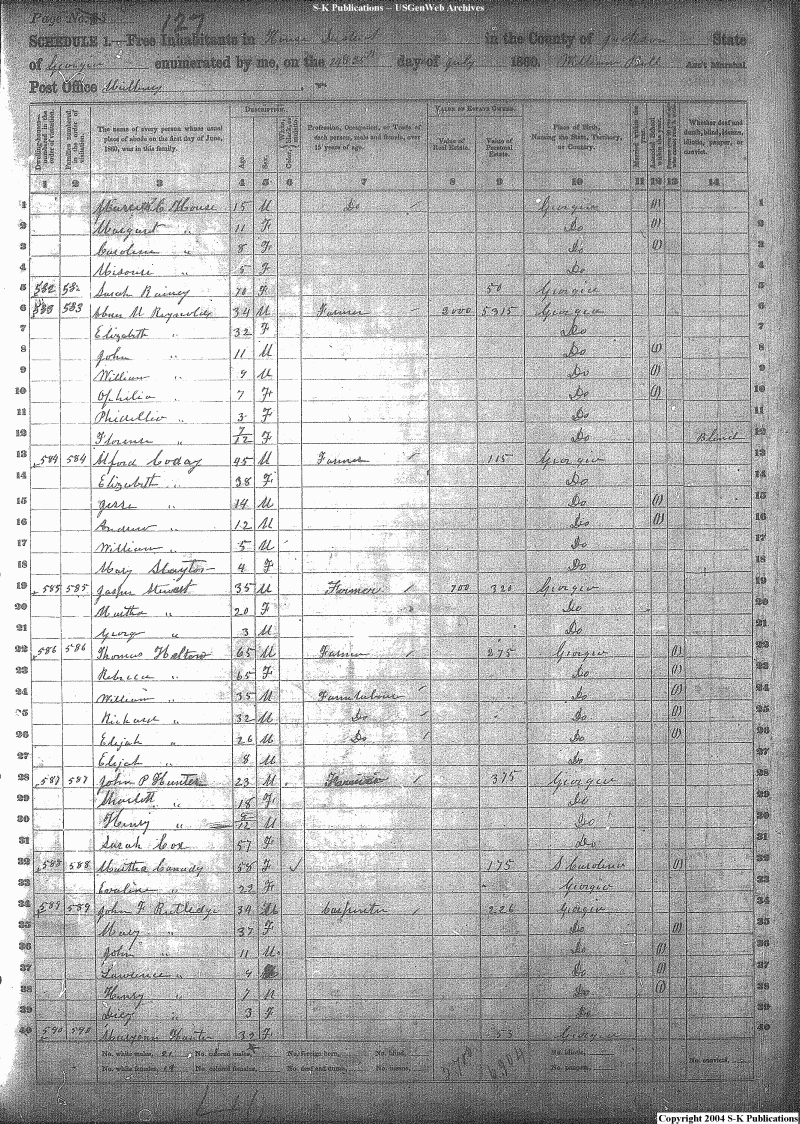 S-K Publications – USGenWeb Archives
Page No. 127
SCHEDULE 1.—Free Inhabitants in House District in the County of Jackson State
of Georgia enumerated by me, on the day of July 1860. William Bell Ass't Marshal
Post Office
DESCRIPTION. VALUE OF ESTATE OWNED.
Dwelling-houses—numbered in the order of visitation. Families numbered in the order of visitation. The name of every person whose usual place of abode on the first day of June, 1860, was in this family. Age. Sex. Color, White, black, or mulatto. Profession, Occupation, or Trade of each person, male and female, over 15 years of age. Value of Real Estate. Value of Personal Estate. Place of Birth, Naming the State, Territory, or Country. Married within the year. Attended School within the year. Whether deaf and dumb, blind, insane, idiotic, pauper, or convict.
1 2 3 4 5 6 7 8 9 10 11 12 13 14
1 House 15 M Do Georgia (1) 1
2 Margaret " 11 F Do (1) 2
3 Caroline " 8 F Do (1) 3
4 Missouri " 5 F Do 4
5 582 582 Sarah Rainey 70 F 50 Georgia 5
6 583 583 Abner M Reynolds 34 M Farmer 2000 5315 Georgia 6
7 Elizabeth " 32 F Do 7
8 John " 11 M Do (1) 8
9 William " 9 M Do (1) 9
10 Ophilia " 7 F Do (1) 10
11 Phidellia " 3 F Do 11
12 Florence " 7/12 F Do Blind 12
13 584 584 Alford Coday 45 M Farmer 115 Georgia 13
14 Elizabeth " 38 F Do 14
15 Jesse " 14 M Do (1) 15
16 Andrew " 12 M Do (1) 16
17 William " 5 M Do 17
18 Mary Slayton 4 F Do 18
19 585 585 Jasper Stewart 35 M Farmer 700 320 Georgia 19
20 Martha " 20 F Do 20
21 George " 3 M Do 21
22 586 586 Thomas Halton 65 M Farmer 275 Georgia (1) 22
23 Rebecca " 65 F Do (1) 23
24 William " 35 M Farm labour Do (1) 24
25 Richard " 32 M Do Do (1) 25
26 Elijah " 26 M Do Do (1) 26
27 Elijah " 8 M Do 27
28 587 587 John P Hunter 23 M Farmer 375 Georgia 28
29 Sharlott " 18 F Do 29
30 Henry " 8/12 M Do 30
31 Sarah Cox 57 F Do 31
32 588 588 Martha Canady 58 F 175 S Carolina (1) 32
33 Evaline " 22 F Georgia 33
34 589 589 John F Rutledge 34 M Carpenter 226 Georgia 34
35 Mary " 37 F Do (1) 35
36 John " 11 M Do (1) 36
37 Lawrence " 9 Do (1) 37
38 Henry " 7 M Do (1) 38
39 3 F Do 39
40 590 590 Maryann Hunter 32 F 53 Georgia 40
No. white males, 21 No. colored males, No. foreign born, No. blind, 2700 6904 No. idiotic, No. convicts,
No. white females, 19 No. colored females, No. deaf and dumb, No. insane, No. paupers,
Copyright 2004 S-K Publications